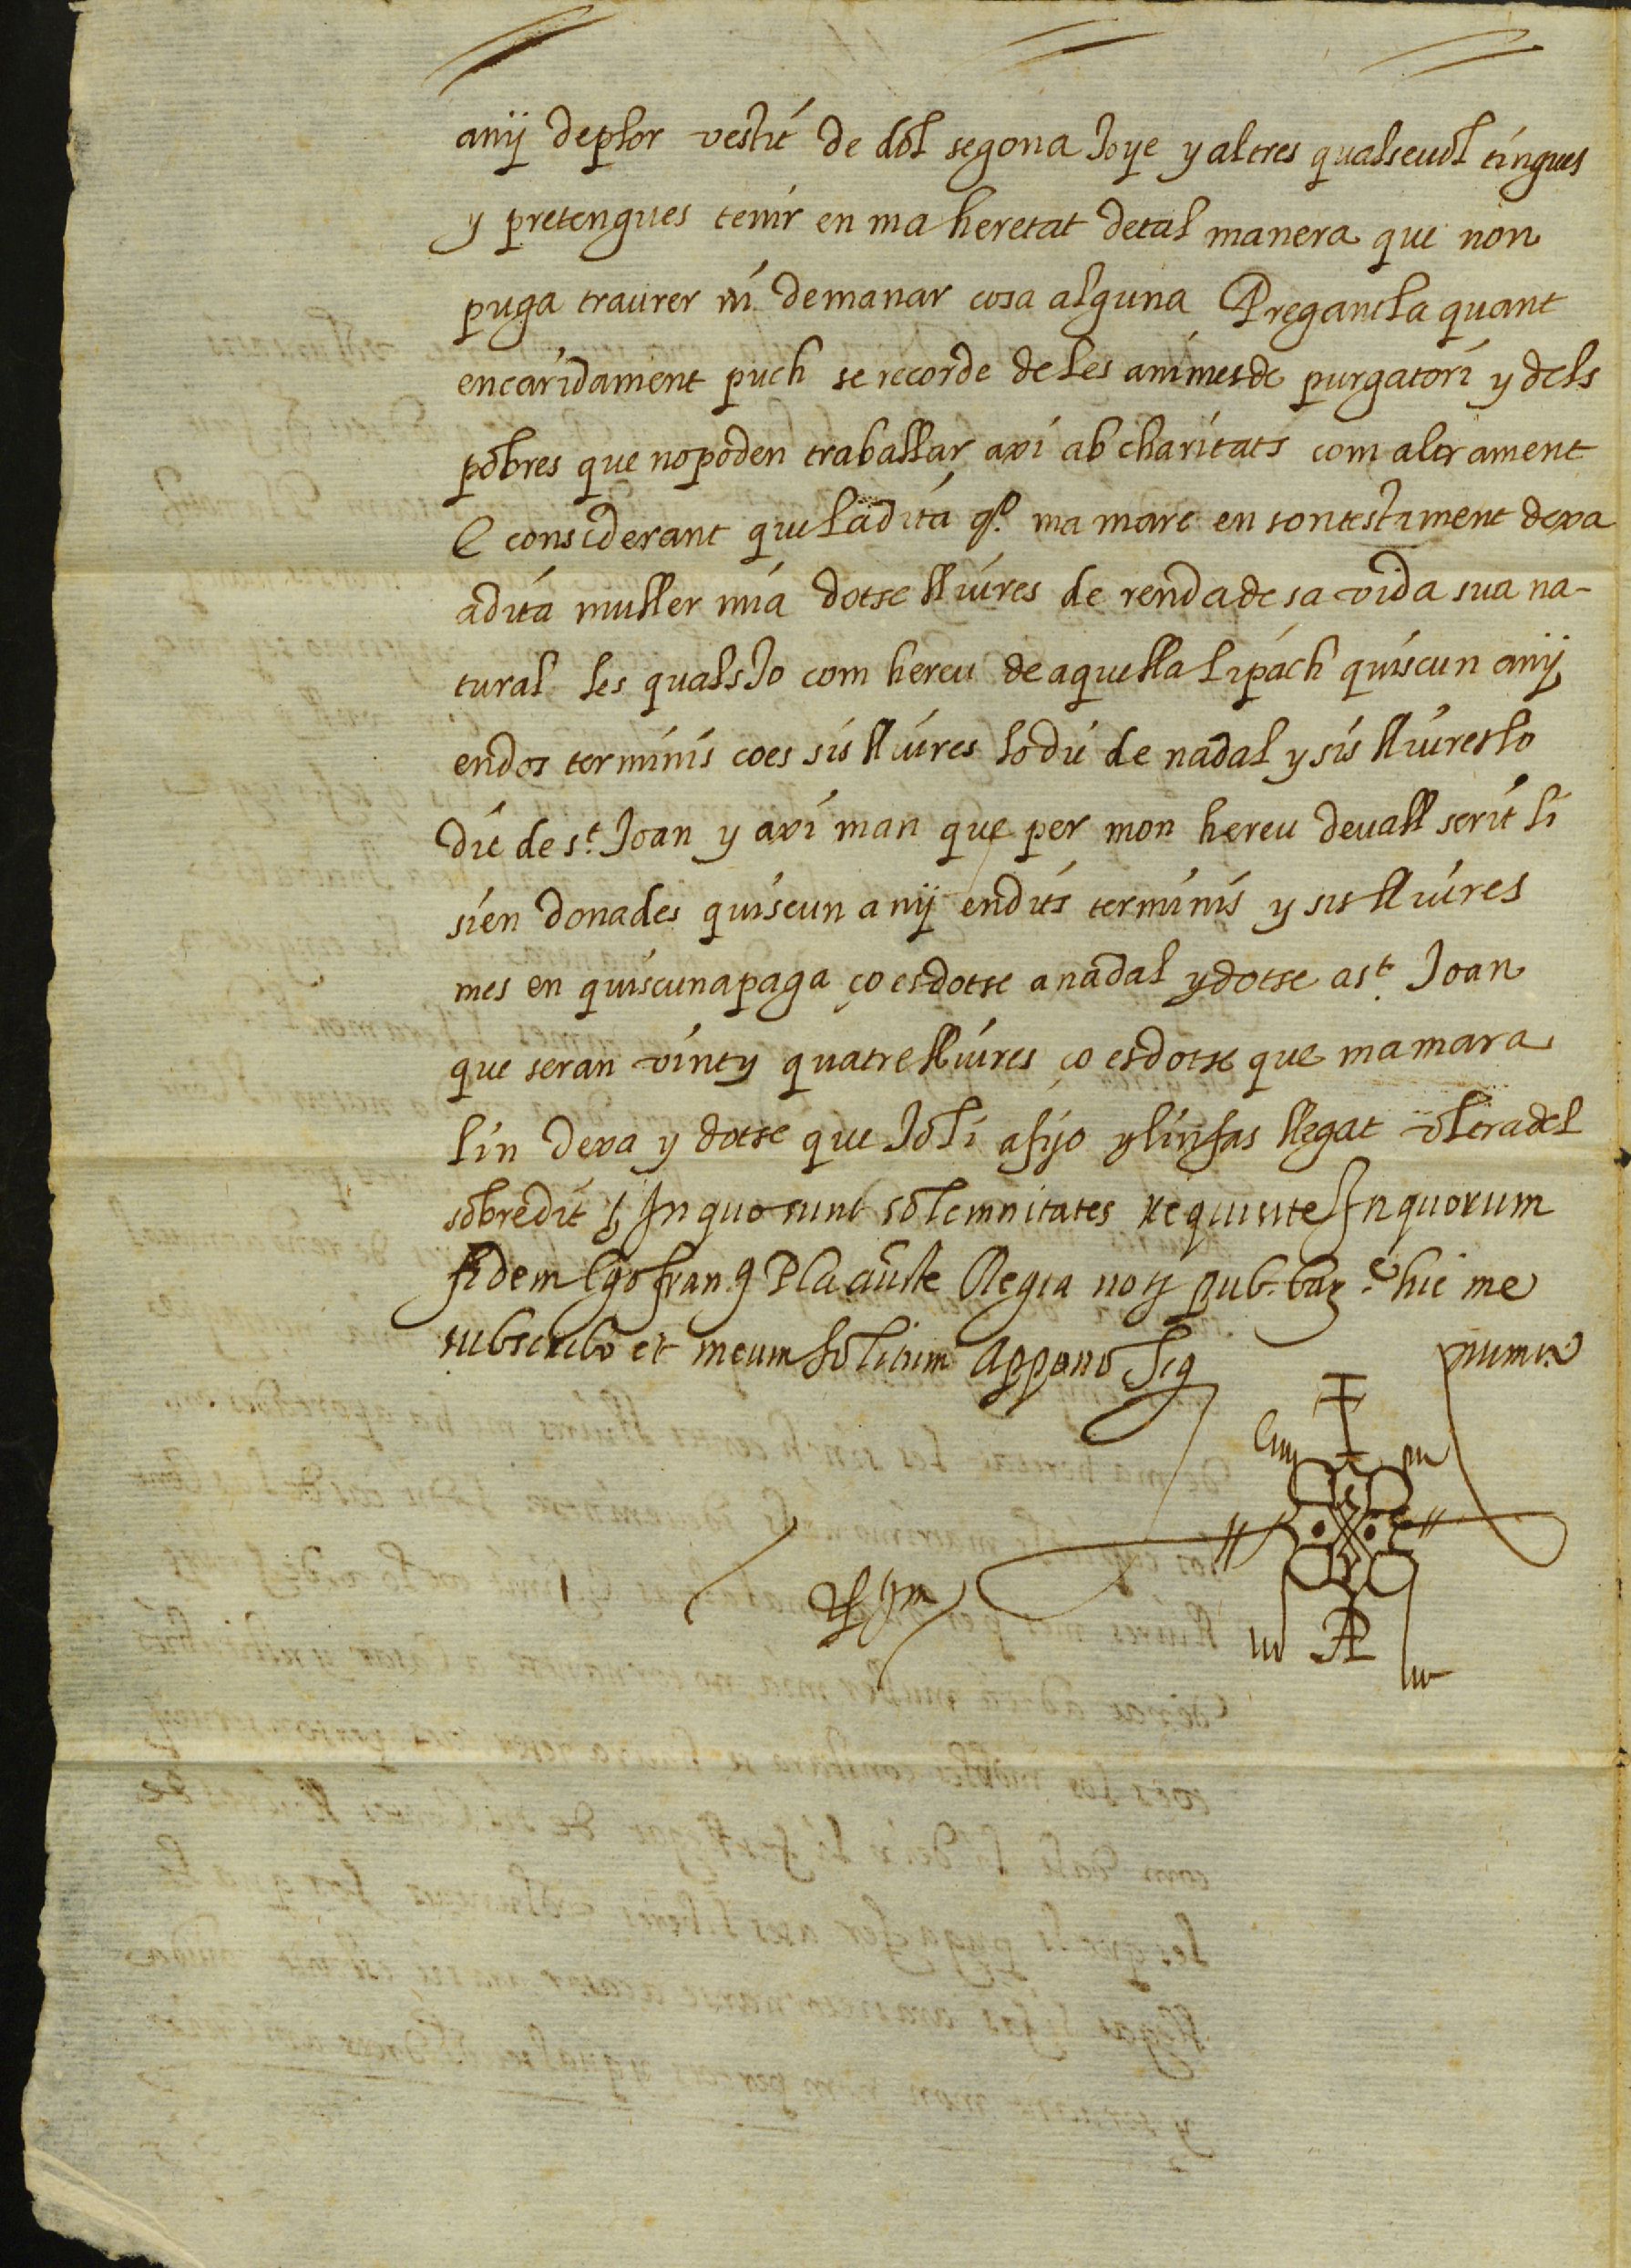 anÿ de plor vestit de dol segona Joye y altres qualsevol tingues
y pretengues tenir en ma heretat de tal manera que non
puga traurer ni demanar cosa alguna Pregantla quant
encaridament puch se recorde de les animes de purgatori y dels
pobres que no poden traballar axi ab charitats com altrament
E considerant que la dita qº. ma mare en son testament dexa
a dita muller mia dotse lliures de renda de sa vida sua na-
tural les quals Jo com hereu de aquella li pach quiscun anÿ
en dos terminis coes sis lliures lo dit de nadal y sis lliures lo
dit de st. Joan y axi man que per mon hereu devall serit li
sien donades quiscun anÿ en dits terminis y sis lliures
mes en quiscuna paga ço es dotse a nadal y dotse a st. Joan
que seran vint y quatre lliures ço es dotse que ma mara
lin dexa y dotse que Jo li afijo y lin fas llegat ultra del
sobredit In quo sunt solemnitates requisite In quorum
fidem Ego Pla aucte Regia pub. hic me
subscribo et meum solitum Appono Sig num